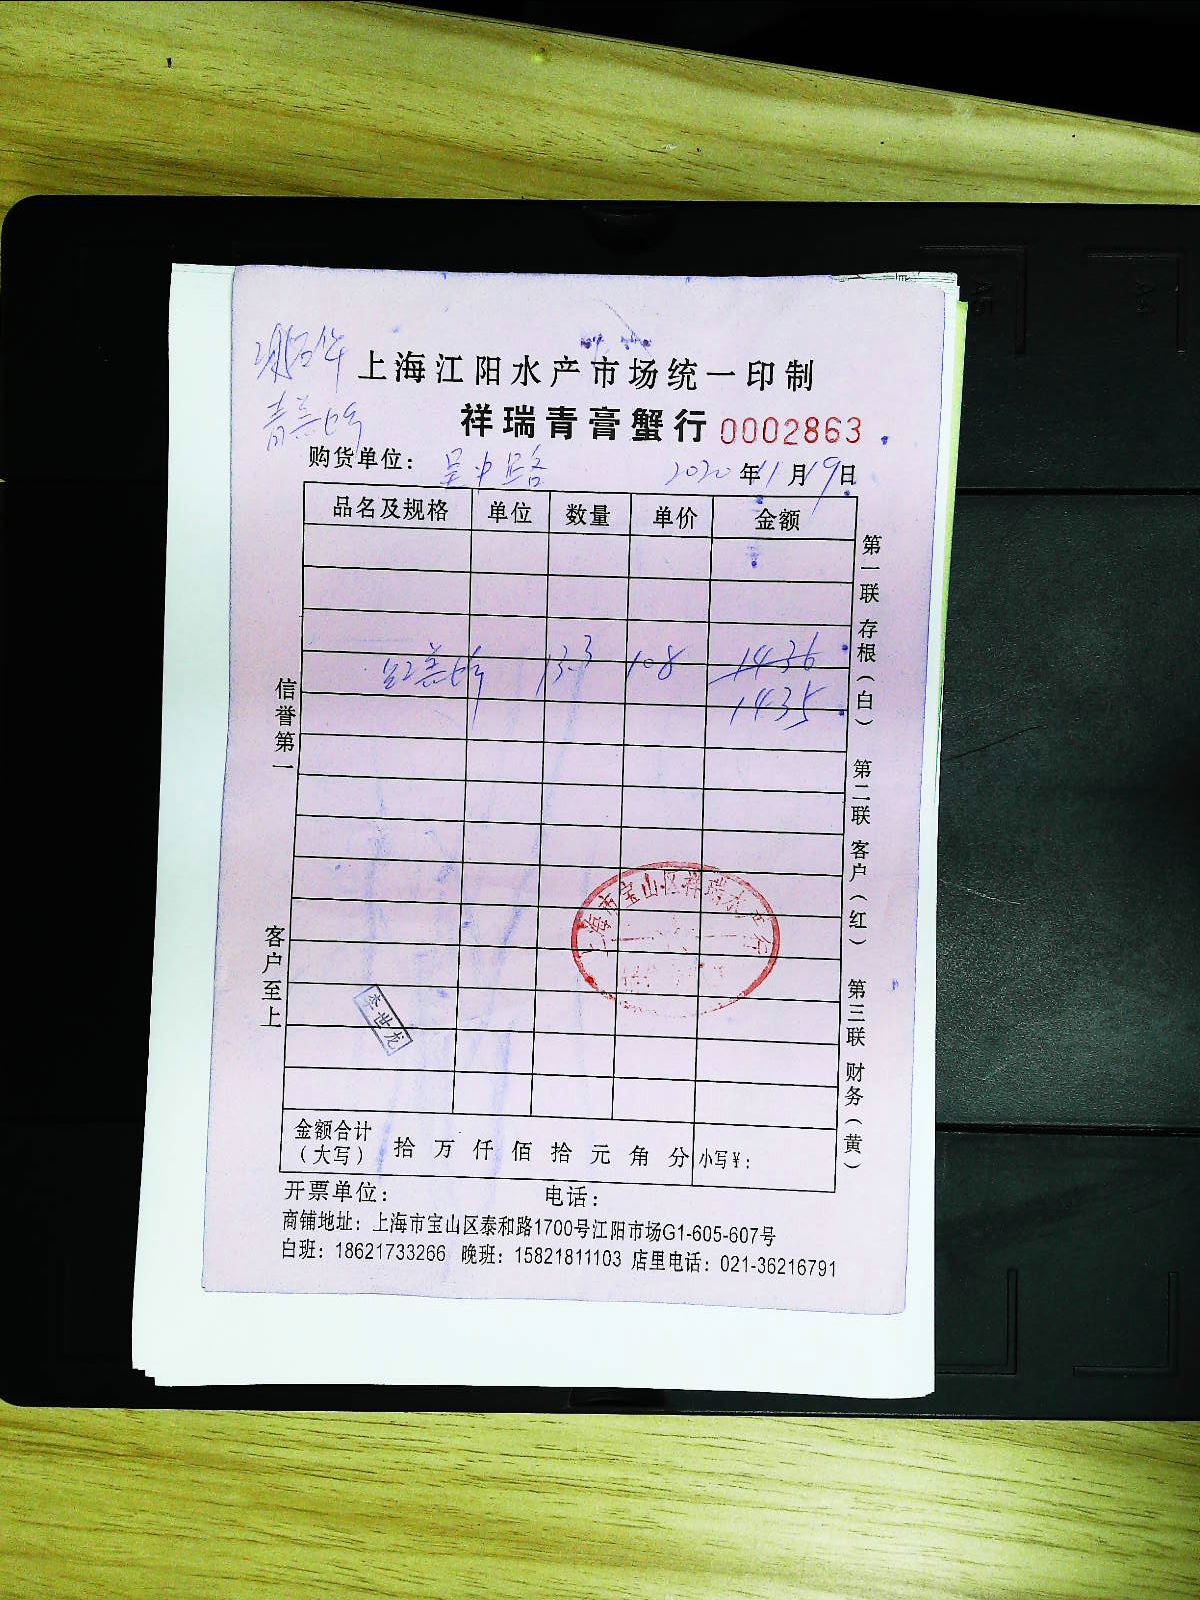 上海江阳水产市场统一印制
青羔蟹
祥瑞青膏蟹行 0002863
购货单位： 吴中路 2020年11月19日
品名及规格 单位 数量 单价 金额
红羔蟹 13.3 108 1436
1435
信誉第一
客户至上
第一联 存根（白） 第二联 客户（红） 第三联 财务（黄）
上海市宝山区祥瑞水产行
李世龙
金额合计（大写） 拾 万 仟 佰 拾 元 角 分 小写¥：
开票单位： 电话：
商铺地址：上海市宝山区泰和路1700号江阳市场G1-605-607号
白班：18621733266 晚班：15821811103 店里电话：021-36216791
A5
A4